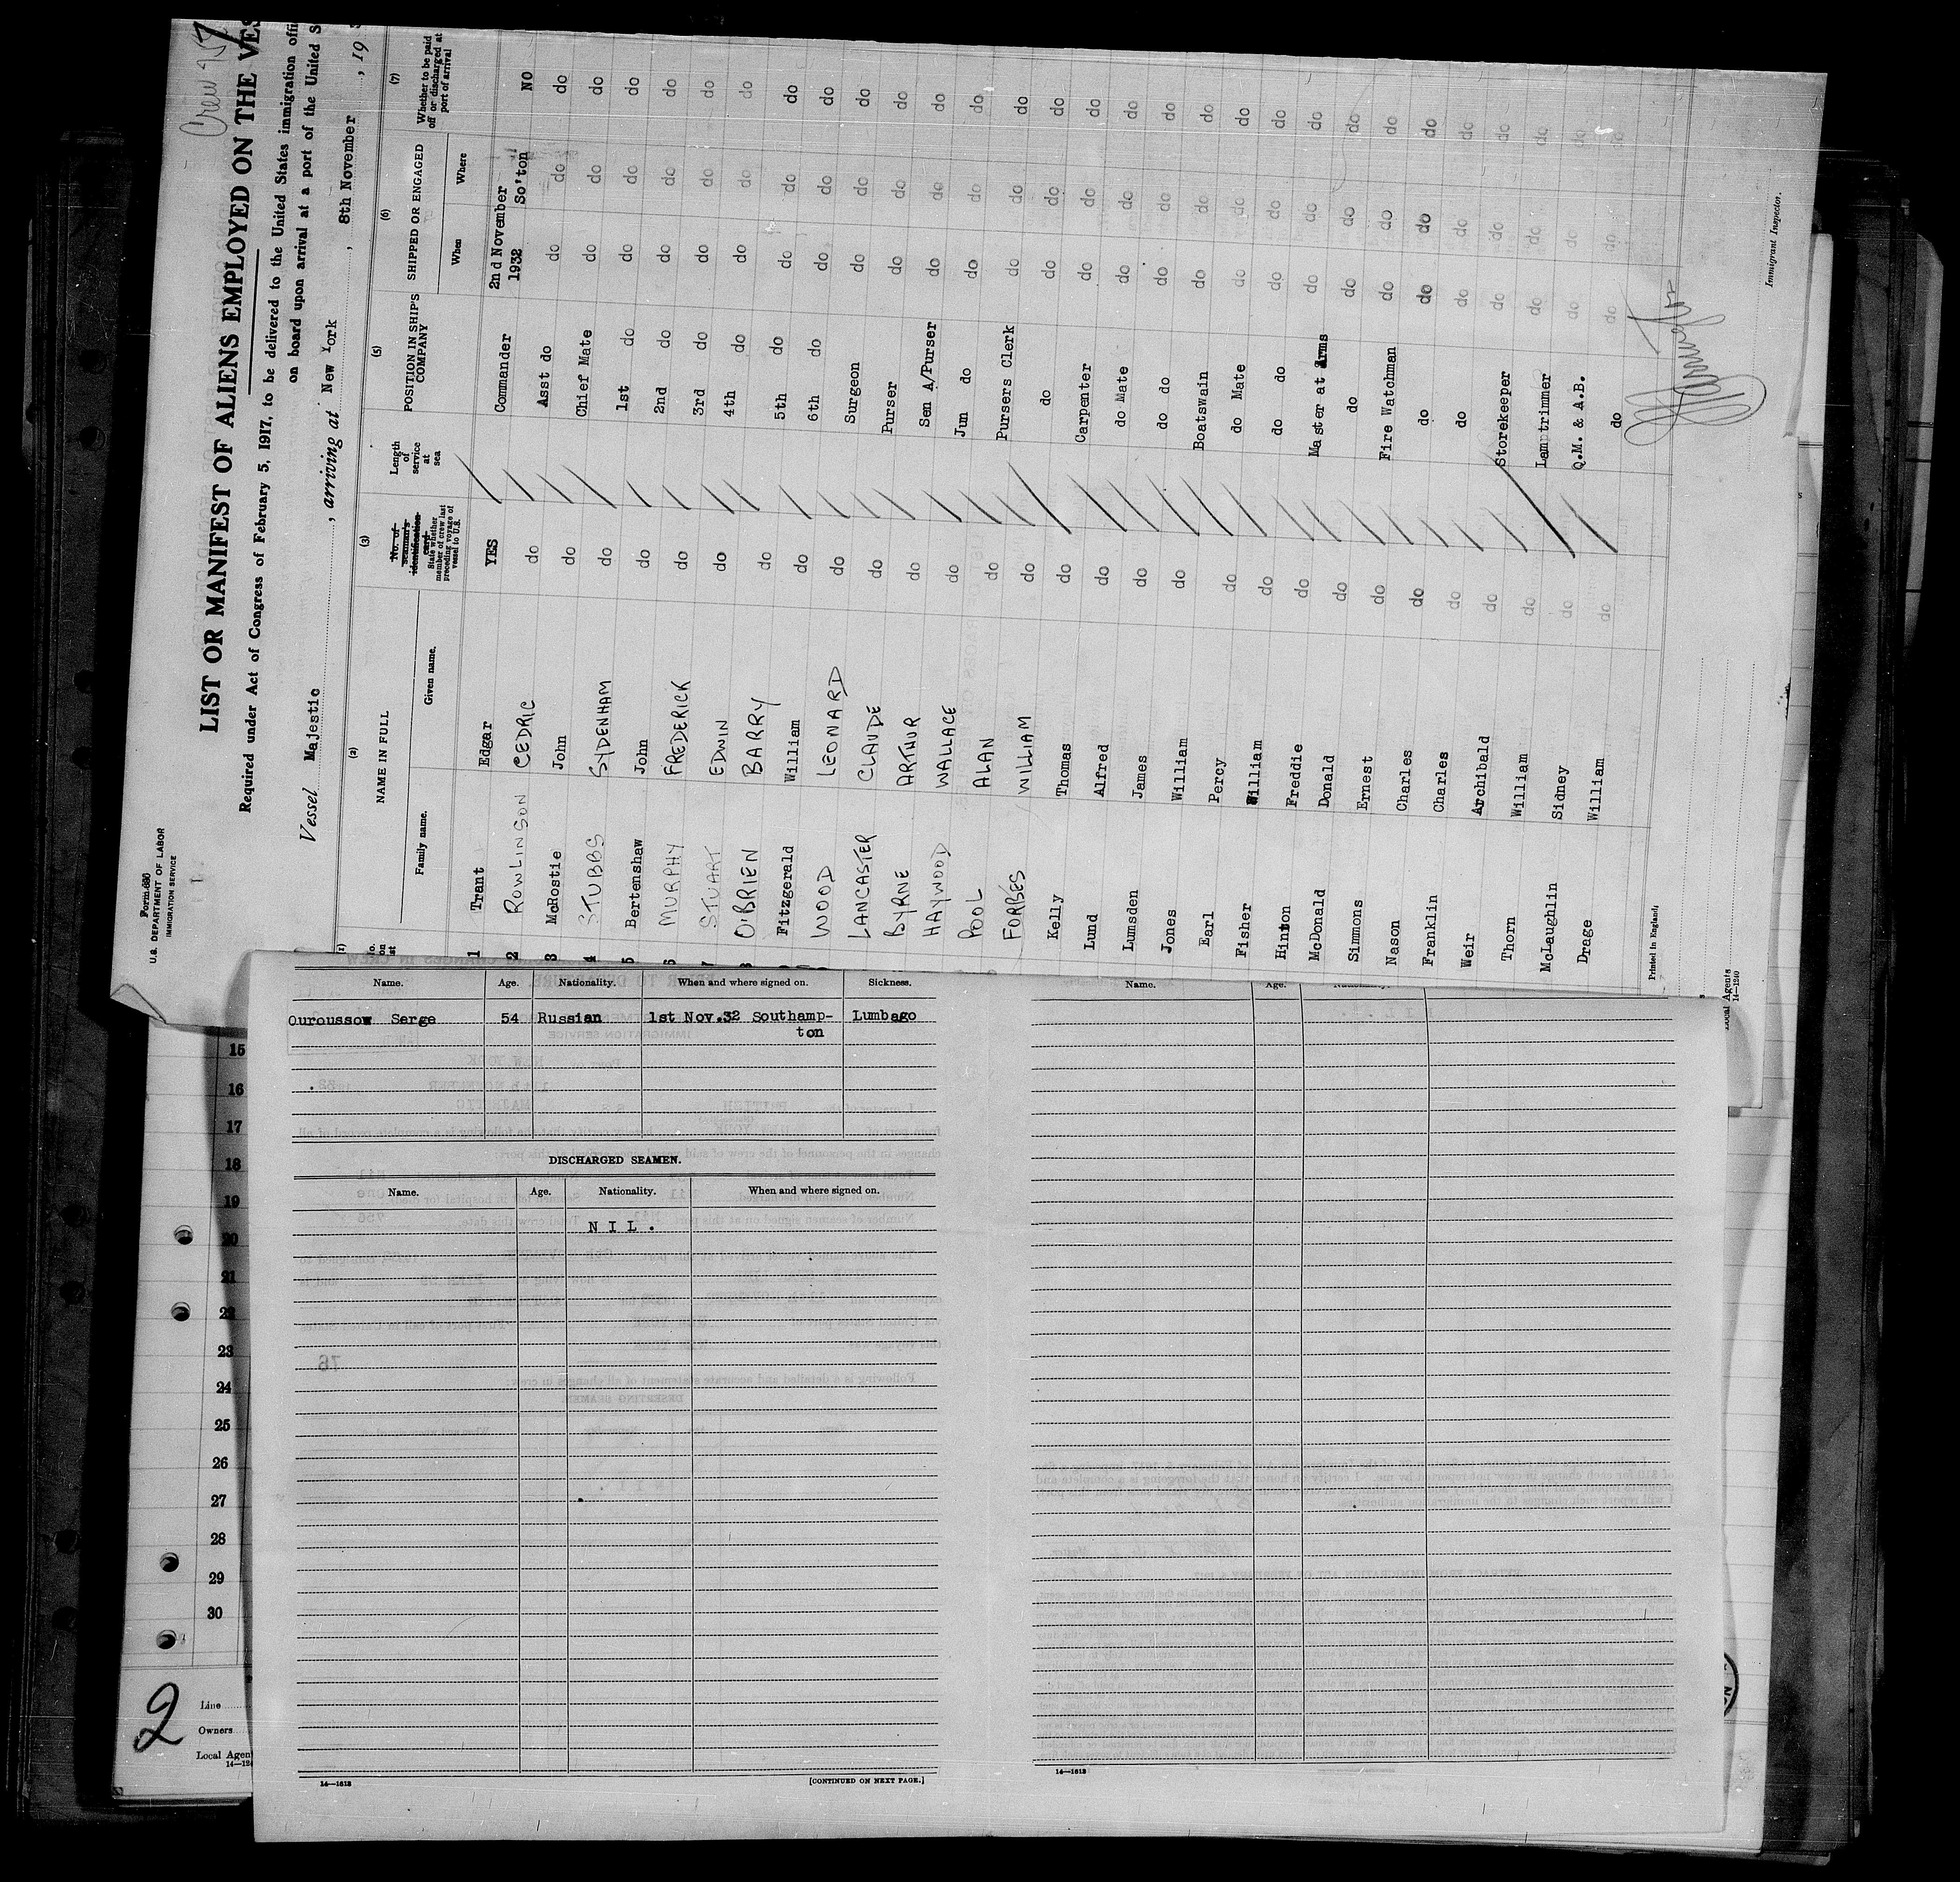 Form 680
U.S. DEPARTMENT OF LABOR
IMMIGRATION SERVICE
Crew
LIST OR MANIFEST OF ALIENS EMPLOYED ON THE VES
Required under Act of Congress of February 5, 1917, to be delivered to the United States immigration offi
on board upon arrival at a port of the United S
Vessel Majestic, arriving at New York, 8th November, 19
(1) (2) (3) (5) (6) (7)
NAME IN FULL
Family name. Given name.
No. of seaman's identification card
State whether member of crew last preceding voyage of vessel to U.S.
Length of service at sea
POSITION IN SHIP'S COMPANY
SHIPPED OR ENGAGED
When Where
Whether to be paid off or discharged at port of arrival
1 Trant Edgar YES Commander 2nd November 1932 So'ton NO
2 ROWLINSON CEDRIC do Asst do do do do
3 McRostie John do Chief Mate do do do
4 STUBBS SYDENHAM do 1st do do do do
5 Bertenshaw John do 2nd do do do do
6 MURPHY FREDERICK do 3rd do do do do
7 STUART EDWIN do 4th do do do do
8 O'BRIEN BARRY do 5th do do do do
Fitzgerald William do 6th do do do do
WOOD LEONARD do Surgeon do do do
LANCASTER CLAUDE do Purser do do do
BYRNE ARTHUR do Sen A/Purser do do do
HAYWOOD WALLACE do Jun do do do do
POOL ALAN do Pursers Clerk do do do
FORBES WILLIAM do do do do do
Kelly Thomas do Carpenter do do do
Lund Alfred do do Mate do do do
Lumsden James do do do do do do
Jones William do Boatswain do do do
Earl Percy do do Mate do do do
Fisher William do do do do do do
Hinton Freddie do Master at Arms do do do
McDonald Donald do do do do do
Simmons Ernest do Fire Watchman do do do
Nason Charles do do do do do
Franklin Charles do do do do do
Weir Archibald do Storekeeper do do do
Thorn William do Lamptrimmer do do do
McLaughlin Sidney do Q.M. & A.B. do do do
Drage William do do do do do
Printed in England
Immigrant Inspector.
Local Agents
14—1240
Name. Age. Nationality. When and where signed on. Sickness.
Ouroussow Serge 54 Russian 1st Nov.32 Southamp-
ton Lumbago
DISCHARGED SEAMEN.
Name. Age. Nationality. When and where signed on.
NIL.
14—1613 [CONTINUED ON NEXT PAGE.]
Name. Age.
14—1613
15
16
17
18
19
20
21
22
23
24
25
26
27
28
29
30
2
Line
Owners
Local Agen